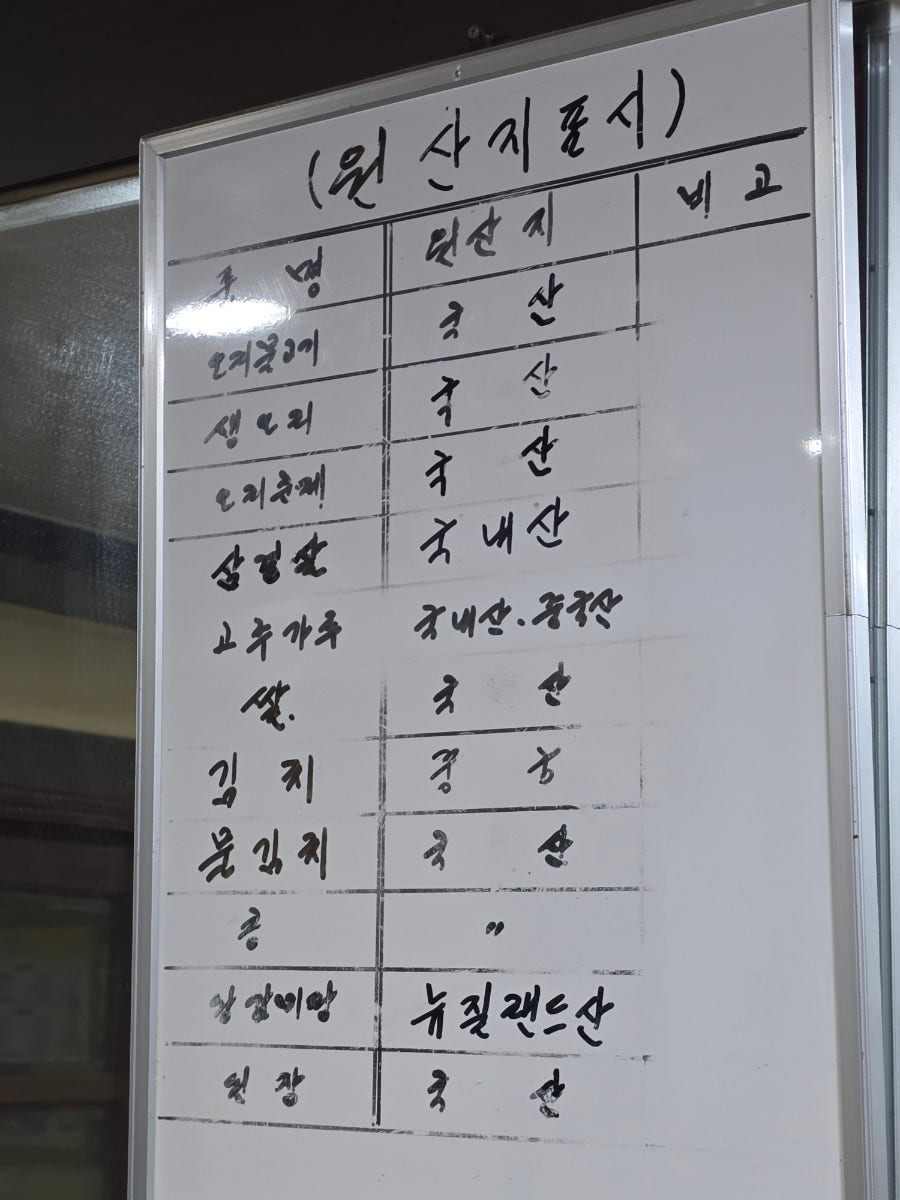 (원산지표시)
품명 원산지 비고
오리불고기 국산
생오리 국산
오리훈제 국산
삼겹살 국내산
고추가루 국내산. 중국산
쌀. 국산
김치 중국
물김치 국산
콩 〃
뉴질랜드산
된장 국산